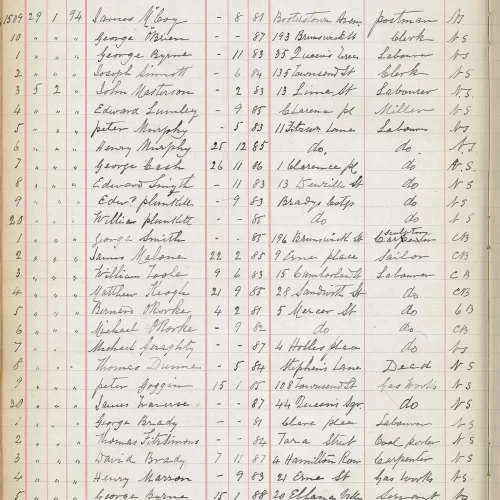 1509 29 1 94 James McCoy - 8 81 Booterstown Aven. postman N
10 " " " George O'Brien - - 87 193 Brunswick St Clerk N S
1 " " " George Byrne - 11 83 35 Queens Labour N S
2 " " " Joseph Sinnott - 6 84 135 Townsend St Clerk N S
3 5 2 " John Masterson - 2 83 13 Lime St Labourer N S
4 " " " Edward Lumley - 9 85 Clarence pl Miller N S
5 " " " peter Murphy - 5 83 11 Fitzwm Lane Labour N S
6 " " " Henry Murphy 25 12 85 do. do N S
7 " " " George Cash 26 11 86 1 Clarence pl do N S
8 " " " Edward Smyth - 11 83 13 Denzille St do N S
9 " " " Edwd plunkett - 9 83 Bradys Cotgs do N S
20 " " " William plunkett - - 85 do do N S
1 " " " George Smith - - 85 196 Brunswick St Carpenter CB
2 " " " James Malone 22 2 85 9 Erne place Sailor CB
3 " " " William Toole 9 6 83 15 Cumberland St Labourer CB
4 " " " Matthew Keogh 21 9 85 28 Sandwith St do CB
5 " " " Bernard ORorke 4 2 81 5 Mercer St do CB
6 " " " Michael ORorke - 9 82 do do CB
7 " " " Michael Geraghty - - 87 4 Holles place do N S
8 " " " Thomas Dunne - 5 84 Stephens Lane Dead N S
9 " " " peter Goggin 15 1 85 108 Townsend St Gas Works N S
30 " " " James - - 87 44 Queens Sqr. do N S
1 " " " George Brady - - 81 Clare place Labourer N S
2 " " " Thomas FitzSimons - - 84 Tara Street Coal porter N S
3 " " " David Brady 7 11 87 4 Hamilton Row Carpenter N S
4 " " " Henry Marron - 9 83 21 Erne St Gas Works N S
5 " " " George Byrne 15 1 88 20 Servant N S